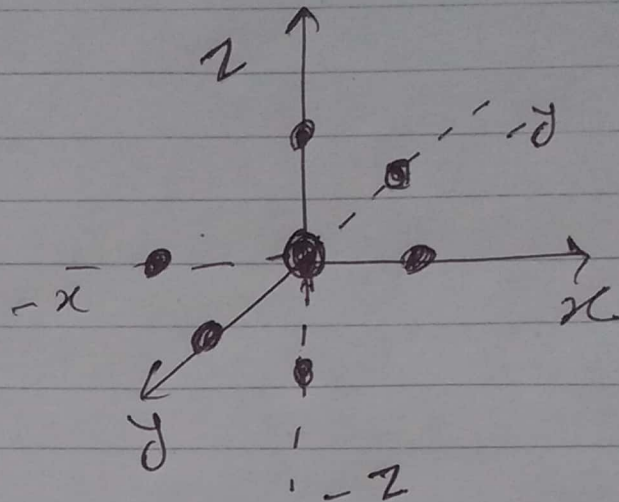 z
-y
-x
x
y
-z